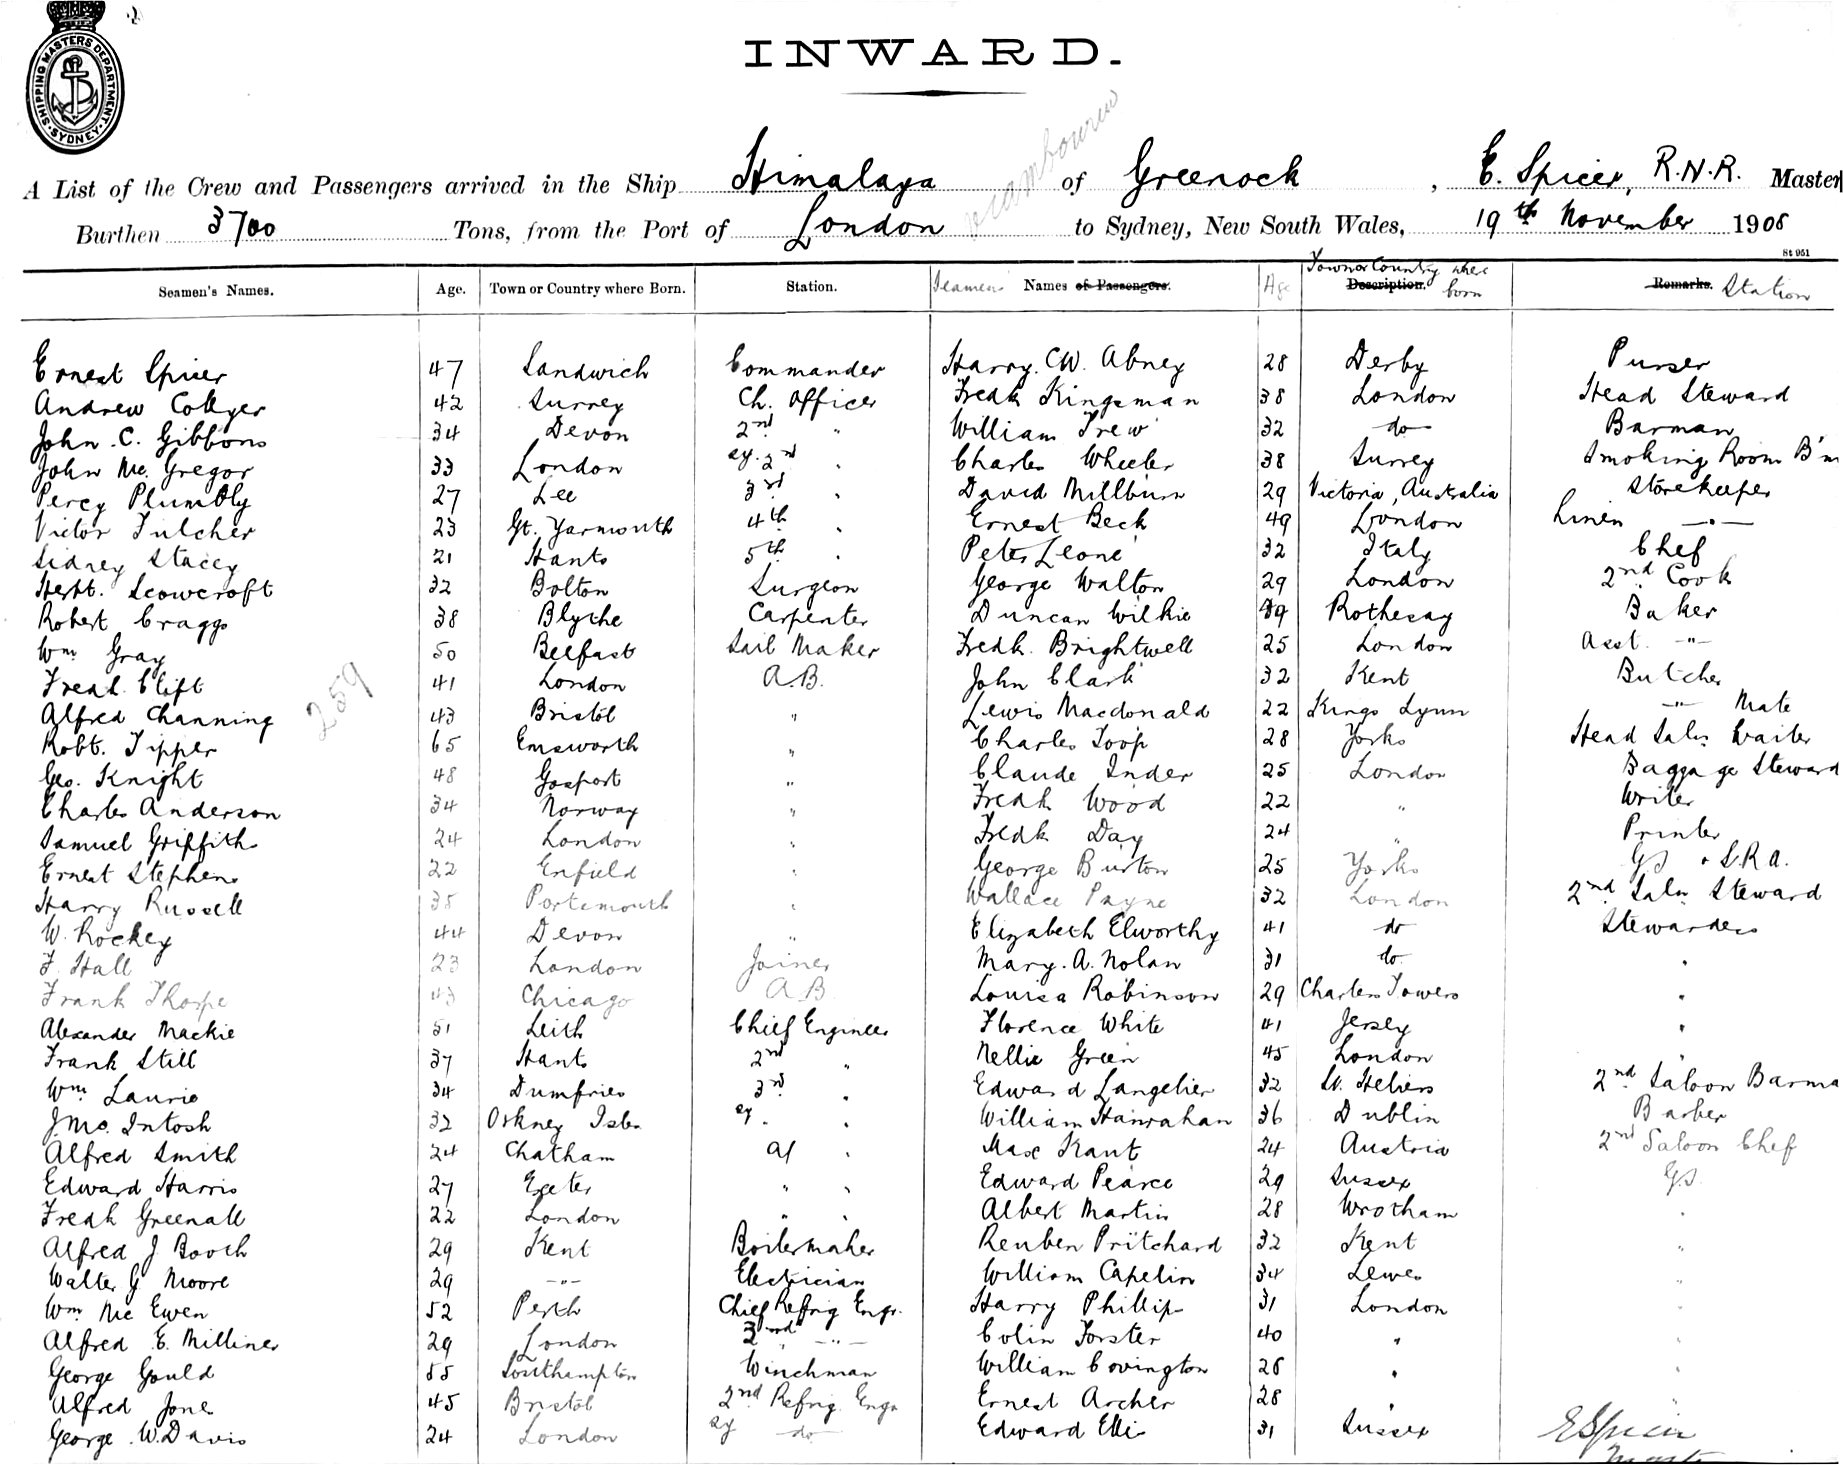 SHIPPING MASTERS DEPARTMENT. SYDNEY.
INWARD.
A List of the Crew and Passengers arrived in the Ship Himalaya of Greenock, E. Spicer, R.N.R. Master
Burthen 3700 Tons, from the Port of London to Sydney, New South Wales, 19th November 1908
St 951
Seamen's Names. Age. Town or Country where Born. Station. Seamens Names of Passengers. Age Town or Country where born Description. Remarks. Station
Ernest Spicer 47 Sandwich Commander Harry. CW. Abney 28 Derby Purser
Andrew Collyer 42 Surrey Ch. Officer Fredk Kingsman 38 London Head Steward
John. C. Gibbons 34 Devon 2nd " William Trew 32 do Barman
John Mc. Gregor 33 London ex. 2nd " Charles Wheeler 38 Surrey Smoking Room B'm
Percy Plumbly 27 Lee 3rd " David Millburn 29 Victoria, Australia Storekeeper
Victor Fulcher 23 Gt. Yarmouth 4th " Ernest Beck 49 London Linen —"—
Sidney Stacey 21 Hants 5th " Peter Leone 32 Italy Chef
Herbt. Scowcroft 32 Bolton Surgeon George Walton 29 London 2nd Cook
Robert Craggs 38 Blythe Carpenter Duncan Wilkie 39 Rothesay Baker
Wm Gray 50 Belfast Sail Maker Fredk. Brightwell 25 London Asst. —"—
Fredk. Clift 41 London A.B. John Clark 32 Kent Butcher
Alfred Channing 43 Bristol " Lewis Macdonald 22 Kings Lynn —"— Mate
259
Robt. Tipper 65 Emsworth " Charles Toop 28 Yorks Head Saln Waiter
Geo. Knight 48 Gosport " Claude Inder 25 London Baggage Steward
Charles Anderson 34 Norway " Fredk Wood 22 " Writer
Samuel Griffiths 24 London " Fredk Day 24 " Printer
Ernest Stephens 22 Enfield " George Burton 25 Yorks GS + S.R.A.
Harry Russell 35 Portsmouth " Wallace Payne 32 London 2nd Saln Steward
W. Rockey 44 Devon " Elizabeth Elworthy 41 do Stewardess
F. Hall 23 London Joiner Mary. A. Nolan 31 do "
Frank Thorpe 43 Chicago A B Louisa Robinson 29 Charters Towers "
Alexander Mackie 51 Leith Chief Engineer Florence White 41 Jersey "
Frank Still 37 Hants 2nd " Nellie Green 45 London "
Wm Laurie 34 Dumfries 3rd " Edward Langelier 32 St. Heliers 2nd Saloon Barma
J. Mc. Intosh 32 Orkney Isles " William Hanrahan 36 Dublin Barber
Alfred Smith 24 Chatham " Max Kant 24 Austria 2nd Saloon Chef
Edward Harris 27 Exeter " " Edward Pearce 29 Sussex GS.
Fredk Greenall 22 London " " Albert Martin 28 Wrotham "
Alfred J Booth 29 Kent Boilermaker Reuben Pritchard 32 Kent "
Walter G Moore 29 —"— Electrician William Capelin 34 Lewes "
Wm Mc Ewen 52 Perth Chief Refrig Engr. Harry Phillips 31 London "
Alfred E. Milliner 29 London 2nd —"— Colin Forster 40 " "
George Gould 55 Southampton Winchman William Covington 28 " "
Alfred Jones 45 Bristol 2nd Refrig. Engr Ernest Archer 28 " "
George. W. Davis 24 London do Edward Ellis 31 Sussex
E Spicer
Master